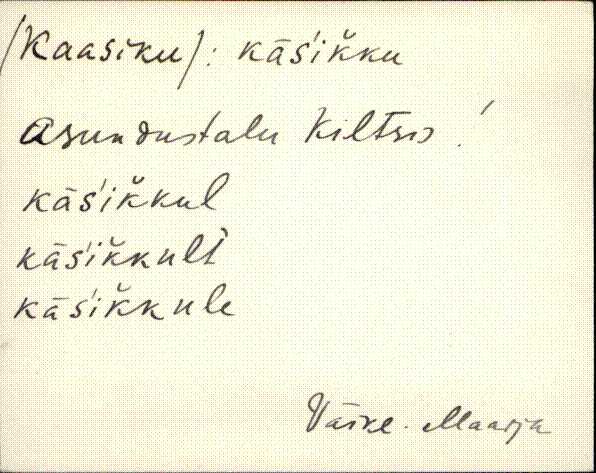 (Kaasiku): kās'iǩku
asundustalu Kiltsis!
kās'iǩkul
kās'iǩkult
kās'iǩkule
Väike-Maarja